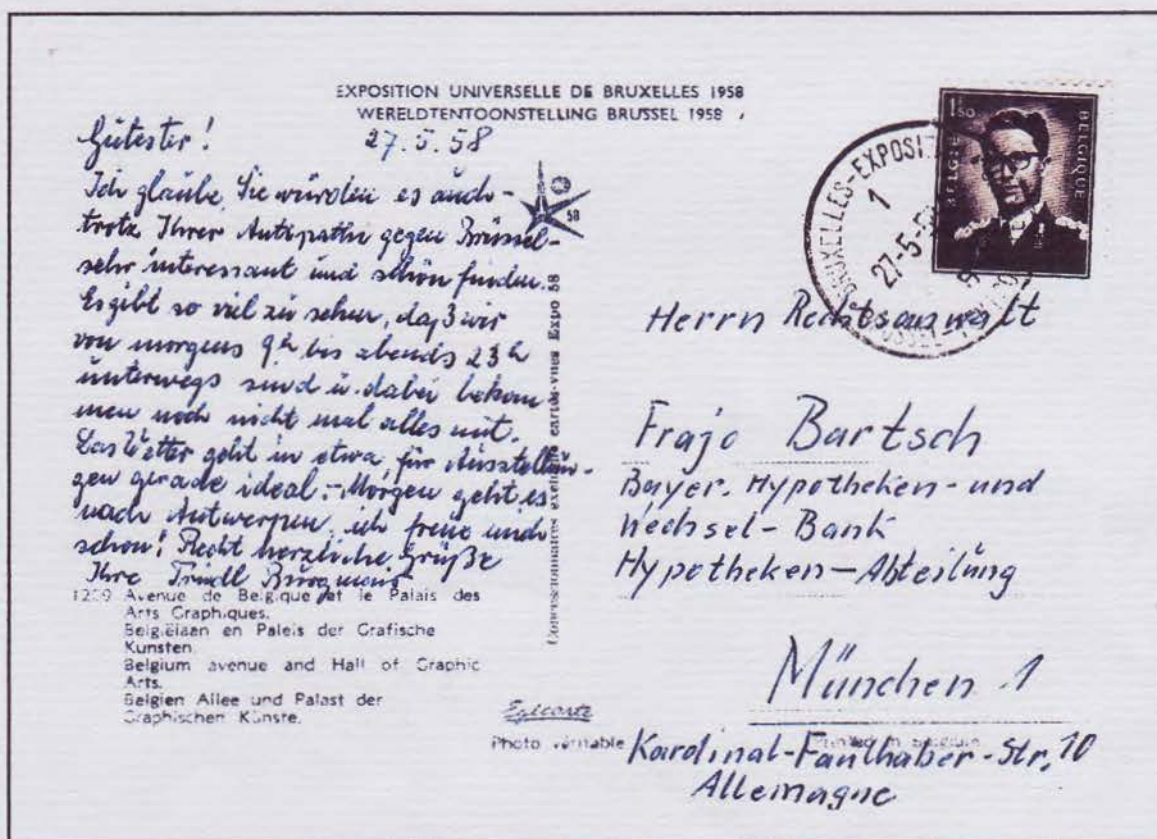 EXPOSITION UNIVERSELLE DE BRUXELLES 1958
WERELDTENTOONSTELLING BRUSSEL 1958
27.5.58
Gutester!
Ich glaube, Sie würden es auch -
trotz Ihrer Antipathie gegen Brüssel -
sehr interessant und schön finden.
Es gibt so viel zu sehen, daß wir
von morgens 9h bis abends 23h
unterwegs sind u. dabei bekom
men noch nicht mal alles mit.
Das Wetter geht in etwa, für Ausstellun-
gen gerade ideal. - Morgen geht es
nach Antwerpen, ich freue mich
schon! Recht herzliche Grüße
Ihre Trudl
1209 Avenue de Belgique et le Palais des
Arts Graphiques.
Belgiëlaan en Paleis der Grafische
Kunsten.
Belgium avenue and Hall of Graphic
Arts.
Belgien Allee und Palast der
Graphischen Künste.
58
cartes-vues Expo 58
Egicarte
Photo véritable
Printed in Belgium
1.50
BELGIE
BELGIQUE
BRUXELLES-EXPOSIT
1
27-5-5
Herrn Rechtsanwalt
Frajo Bartsch
Bayer. Hypotheken- und
Wechsel-Bank
Hypotheken-Abteilung
München 1
Kardinal-Faulhaber-Str. 10
Allemagne